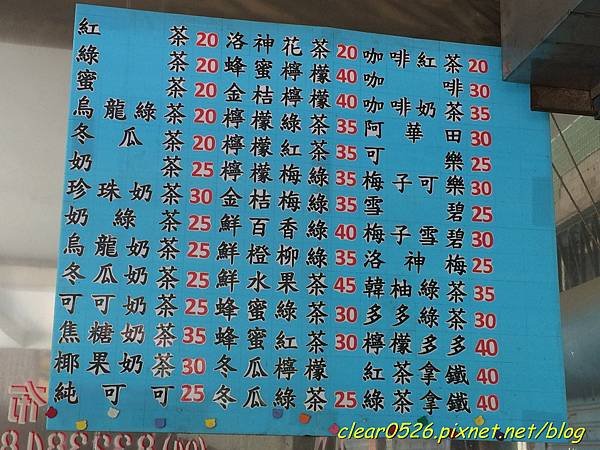 紅茶 20
綠茶 20
蜜茶 20
烏龍綠茶 20
冬瓜茶 20
奶茶 25
珍珠奶茶 30
奶綠茶 25
烏龍奶茶 25
冬瓜奶茶 25
可可奶茶 25
焦糖奶茶 35
椰果奶茶 30
純可可 25
洛神花茶 20
蜂蜜檸檬 40
金桔檸檬 40
檸檬綠茶 35
檸檬紅茶 35
檸檬梅綠 35
金桔梅綠 35
鮮百香綠 40
鮮橙柳綠 35
鮮水果茶 45
蜂蜜綠茶 30
蜂蜜紅茶 30
冬瓜檸檬
冬瓜綠茶 25
咖啡紅茶 20
咖啡 30
咖啡奶茶 35
阿華田 30
可樂 25
梅子可樂 30
雪碧 25
梅子雪碧 30
洛神梅 25
韓柚綠茶 35
多多綠茶 30
檸檬多多 40
紅茶拿鐵 40
綠茶拿鐵 40
clear0526.pixnet.net/blog